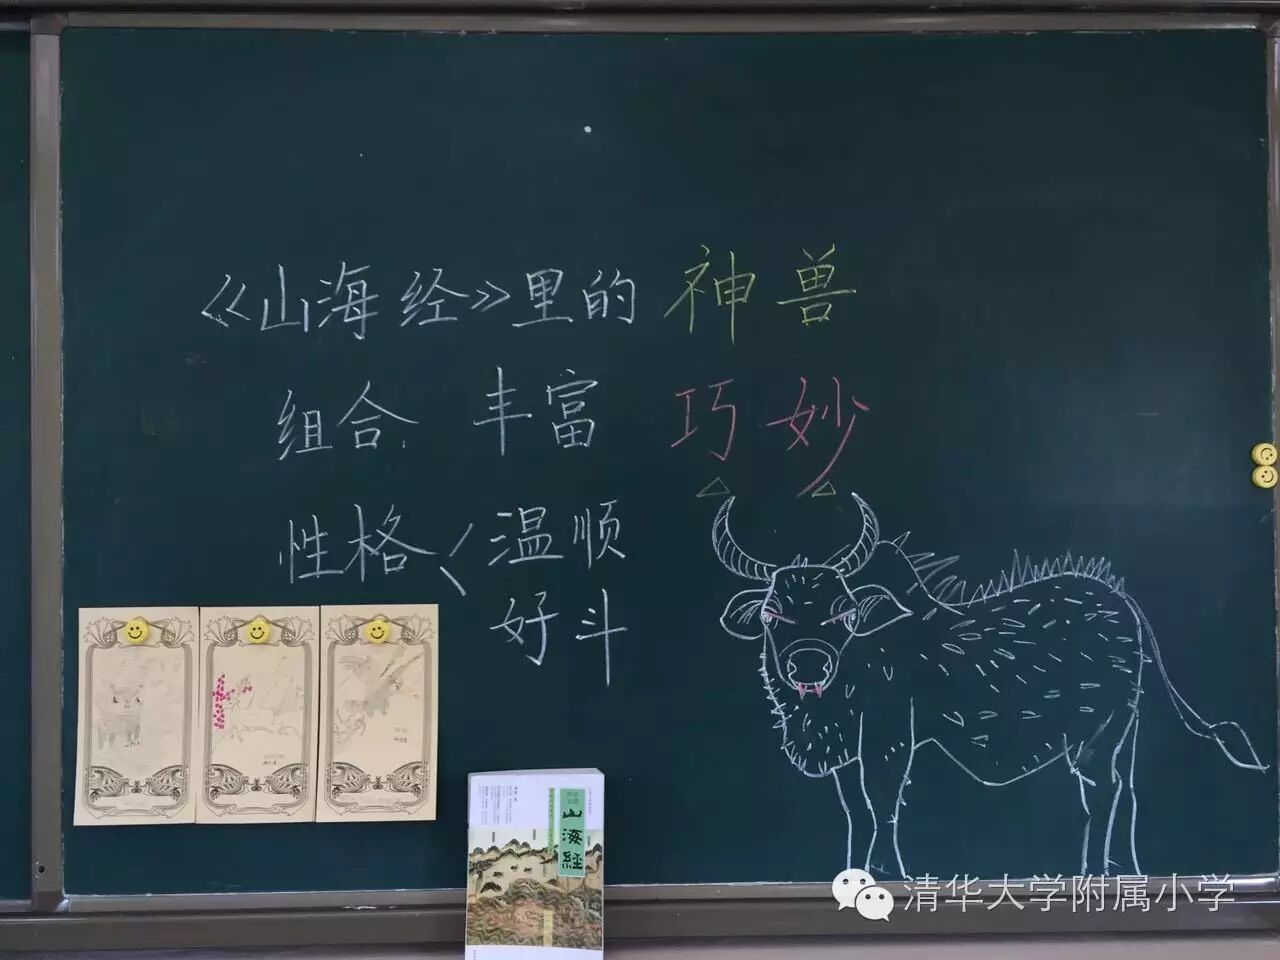 《山海经》里的 神兽
组合: 丰富 巧妙
性格 温顺
好斗
山海經
清华大学附属小学